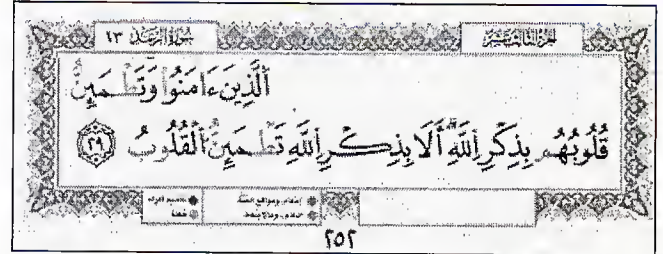 الجزء الثالث عشر سورة الرعد ١٣
ٱلَّذِينَ ءَامَنُوا۟ وَتَطْمَئِنُّ
قُلُوبُهُم بِذِكْرِ ٱللَّهِ أَلَا بِذِكْرِ ٱللَّهِ تَطْمَئِنُّ ٱلْقُلُوبُ ٢٩
إخفاء، ومواقع الغنّة
٢٥٢